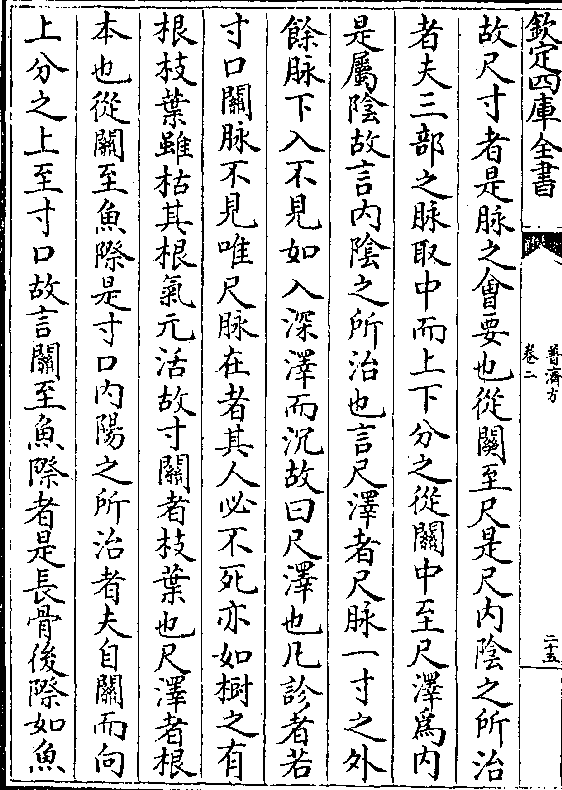 欽定四庫全書
普濟方
卷二
二十五
故尺寸者是脉之會要也從關至尺是尺内陰之所治
者夫三部之脉取中而上下分之從關中至尺澤為内
是屬陰故言内陰之所治也言尺澤者尺脉一寸之外
餘脉下入不見如入深澤而沉故曰尺澤也凡診者若
寸口關脉不見唯尺脉在者其人必不死亦如樹之有
根枝葉雖枯其根氣元活故寸關者枝葉也尺澤者根
本也從關至魚際是寸口内陽之所治者夫自關而向
上分之上至寸口故言關至魚際者是長骨後際如魚